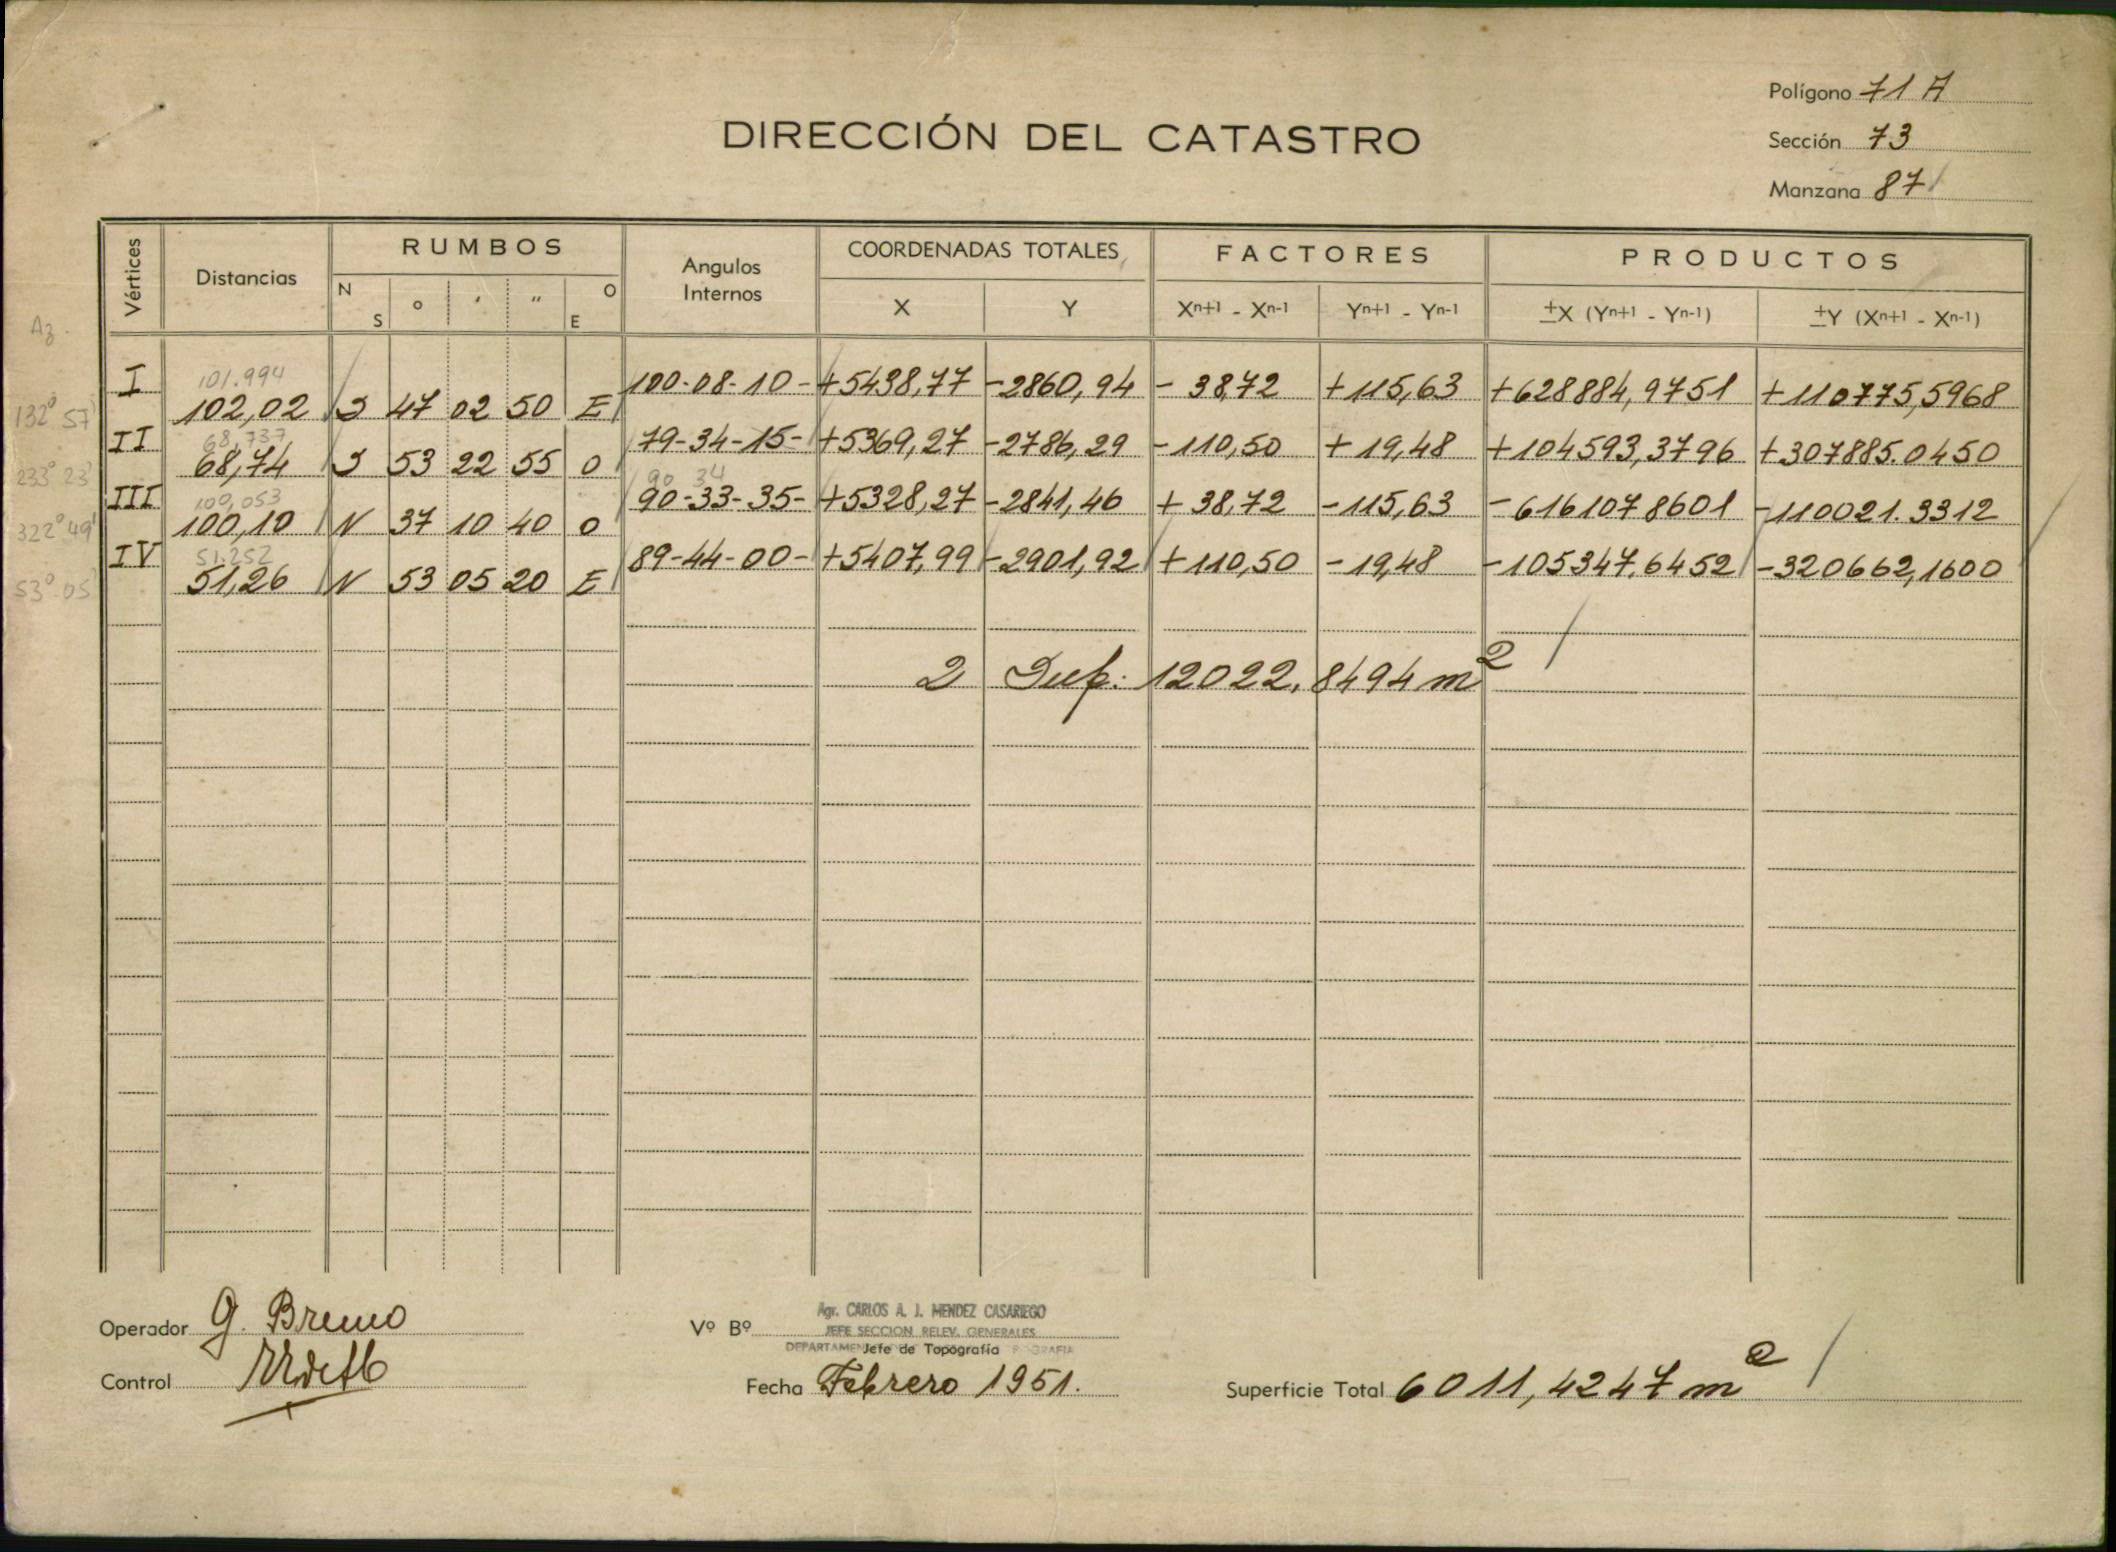 Polígono 71 A
DIRECCIÓN DEL CATASTRO
Sección 73
Manzana 87
Vértices
Distancias
RUMBOS
N S ° ' " O E
Angulos Internos
COORDENADAS TOTALES
X Y
FACTORES
Xn+1 - Xn-1 Yn+1 - Yn-1
PRODUCTOS
±X (Yn+1 - Yn-1) ±Y (Xn+1 - Xn-1)
Az.
I 101.994 100-08-10- +5438,77 -2860,94 - 38,72 +115,63 +628884,9751 +110775,5968
132° 57' 102,02 S 47 02 50 E
II 68,737 79-34-15- +5369,27 -2786,29 -110,50 + 19,48 +104593,3796 +307885.0450
233° 23' 68,74 S 53 22 55 O
90 34
III 100,053 90-33-35- +5328,27 -2841,46 + 38,72 -115,63 -616107,8601 -110021.3312
322° 49' 100,10 N 37 10 40 O
IV 51.252 89-44-00- +5407,99 -2901,92 +110,50 -19,48 -105347,6452 -320662,1600
53° 05' 51,26 N 53 05 20 E
2 Sup: 12022,8494 m2
Operador G. Bruno
Control
Vº Bº Agr. CARLOS A. J. MENDEZ CASARIEGO
JEFE SECCION RELEV. GENERALES
Jefe de Topografía
Fecha Febrero 1951.
Superficie Total 6011,4247 m2